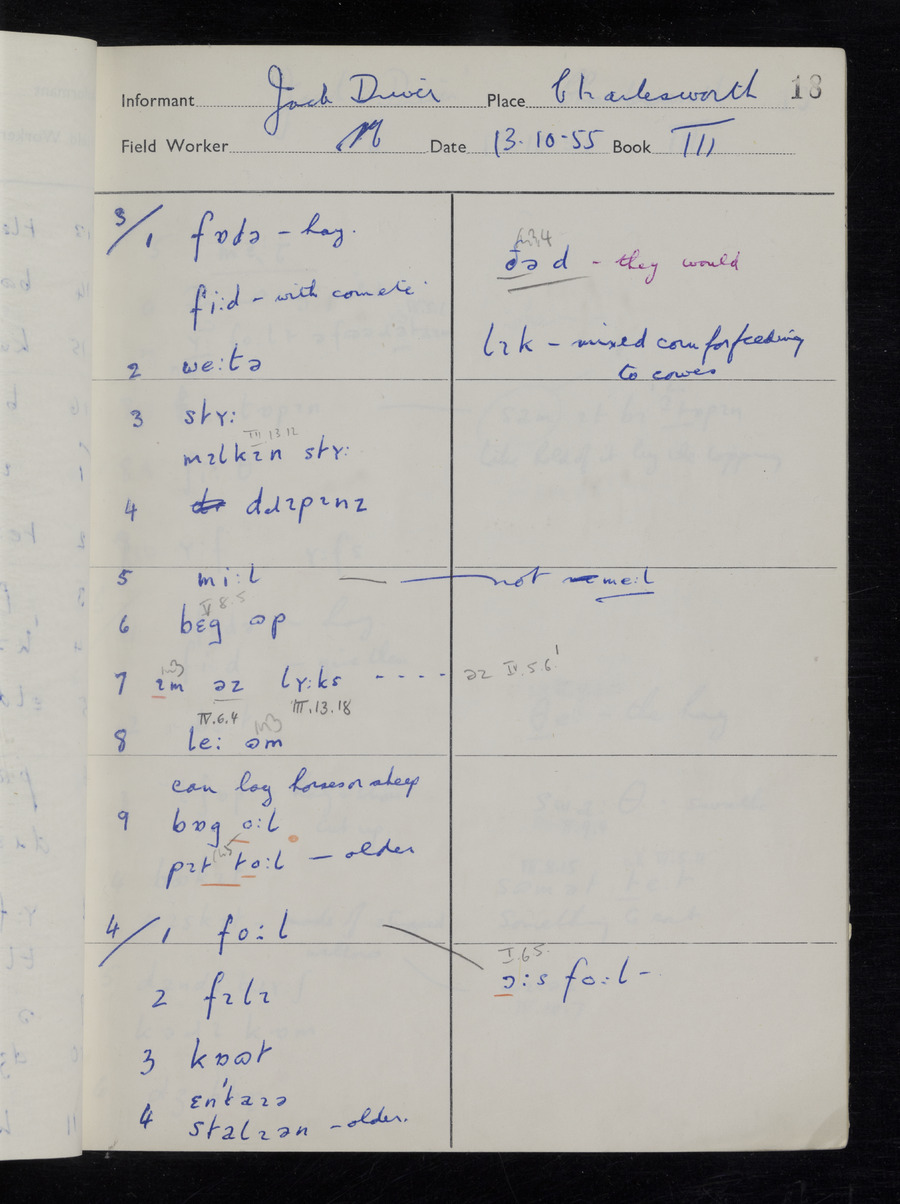 Informant Jack Driver Place Charlesworth 18
Field Worker M Date 13.10-55 Book III
3/1 fɒdə – hay.
fi:d – with
2 we:tə
3 sty:
III 13 12
mɪlkɪn sty:
4 dɹɪpɪnz
5 mi:l
V 8.5
6 bɛg ɷp
7 ɪm əz ly:ks - - - -
IV.6.4 III.13.18
8 le: əm
can lay horses or sheep
9 bɒg o:l
pɪt to:l – older
4/1 fo:l
2 fɪlɪ
3 kɒɷt
4 ɛn'taɪə
stalɪən – older.
ðəd – they would
lɪk – mixed corn for feeding
to cows
not me:l
əz IV.5.6'
I.65.
ɔ:s fo:l –